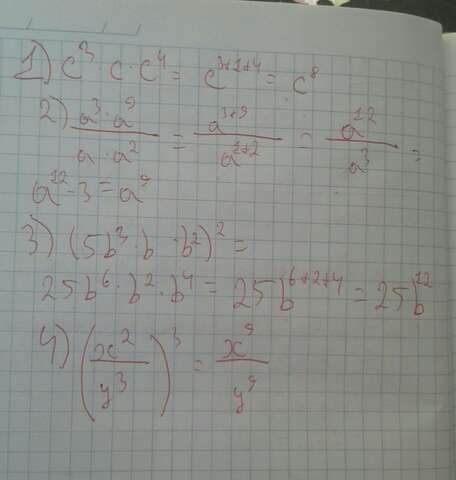 1) c³ · c · c⁴ = c³⁺¹⁺⁴ = c⁸
2) (a³ · a⁹)/(a · a²) = a³⁺⁹/a¹⁺² = a¹²/a³ =
a¹² - 3 = a⁹
3) (5b³ · b · b²)² =
25b⁶ · b² · b⁴ = 25b⁶⁺²⁺⁴ = 25b¹²
4) (x²/y³)³ = x⁹/y⁹